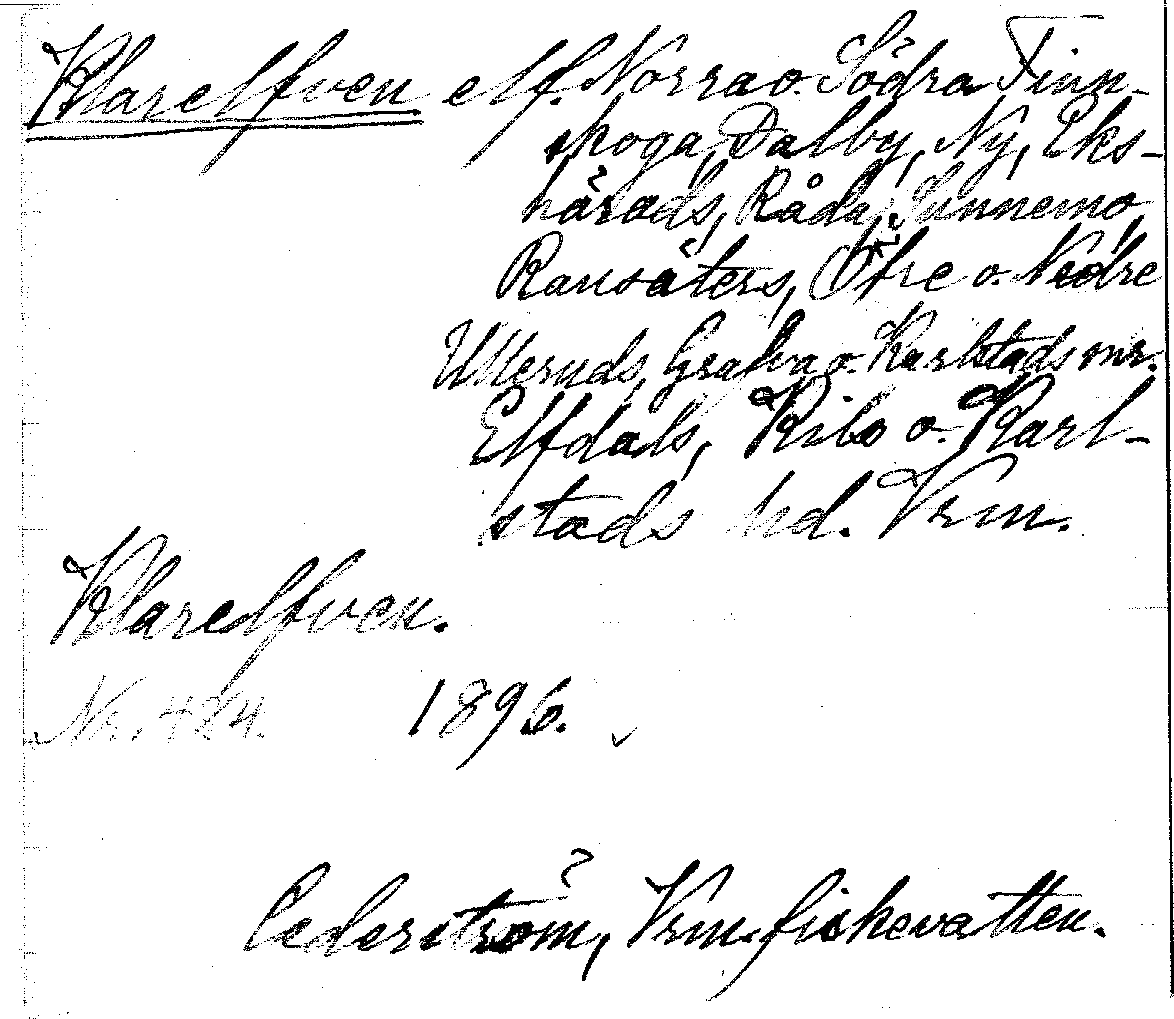 Klarelfven elf. Norra o. Södra Finn-
skoga, Dalby, Ny, Eks-
härads, Råda, Sunnemo,
Ransäters, Öfre o. Nedre
Ulleruds, Grafva o. Karlstads snr.
Elfdals, Kils o. Karl-
stads hd. Vrm.
Klarelfven.
Nr. 484. 1896.
Cederström, Vrm. fiskevatten.